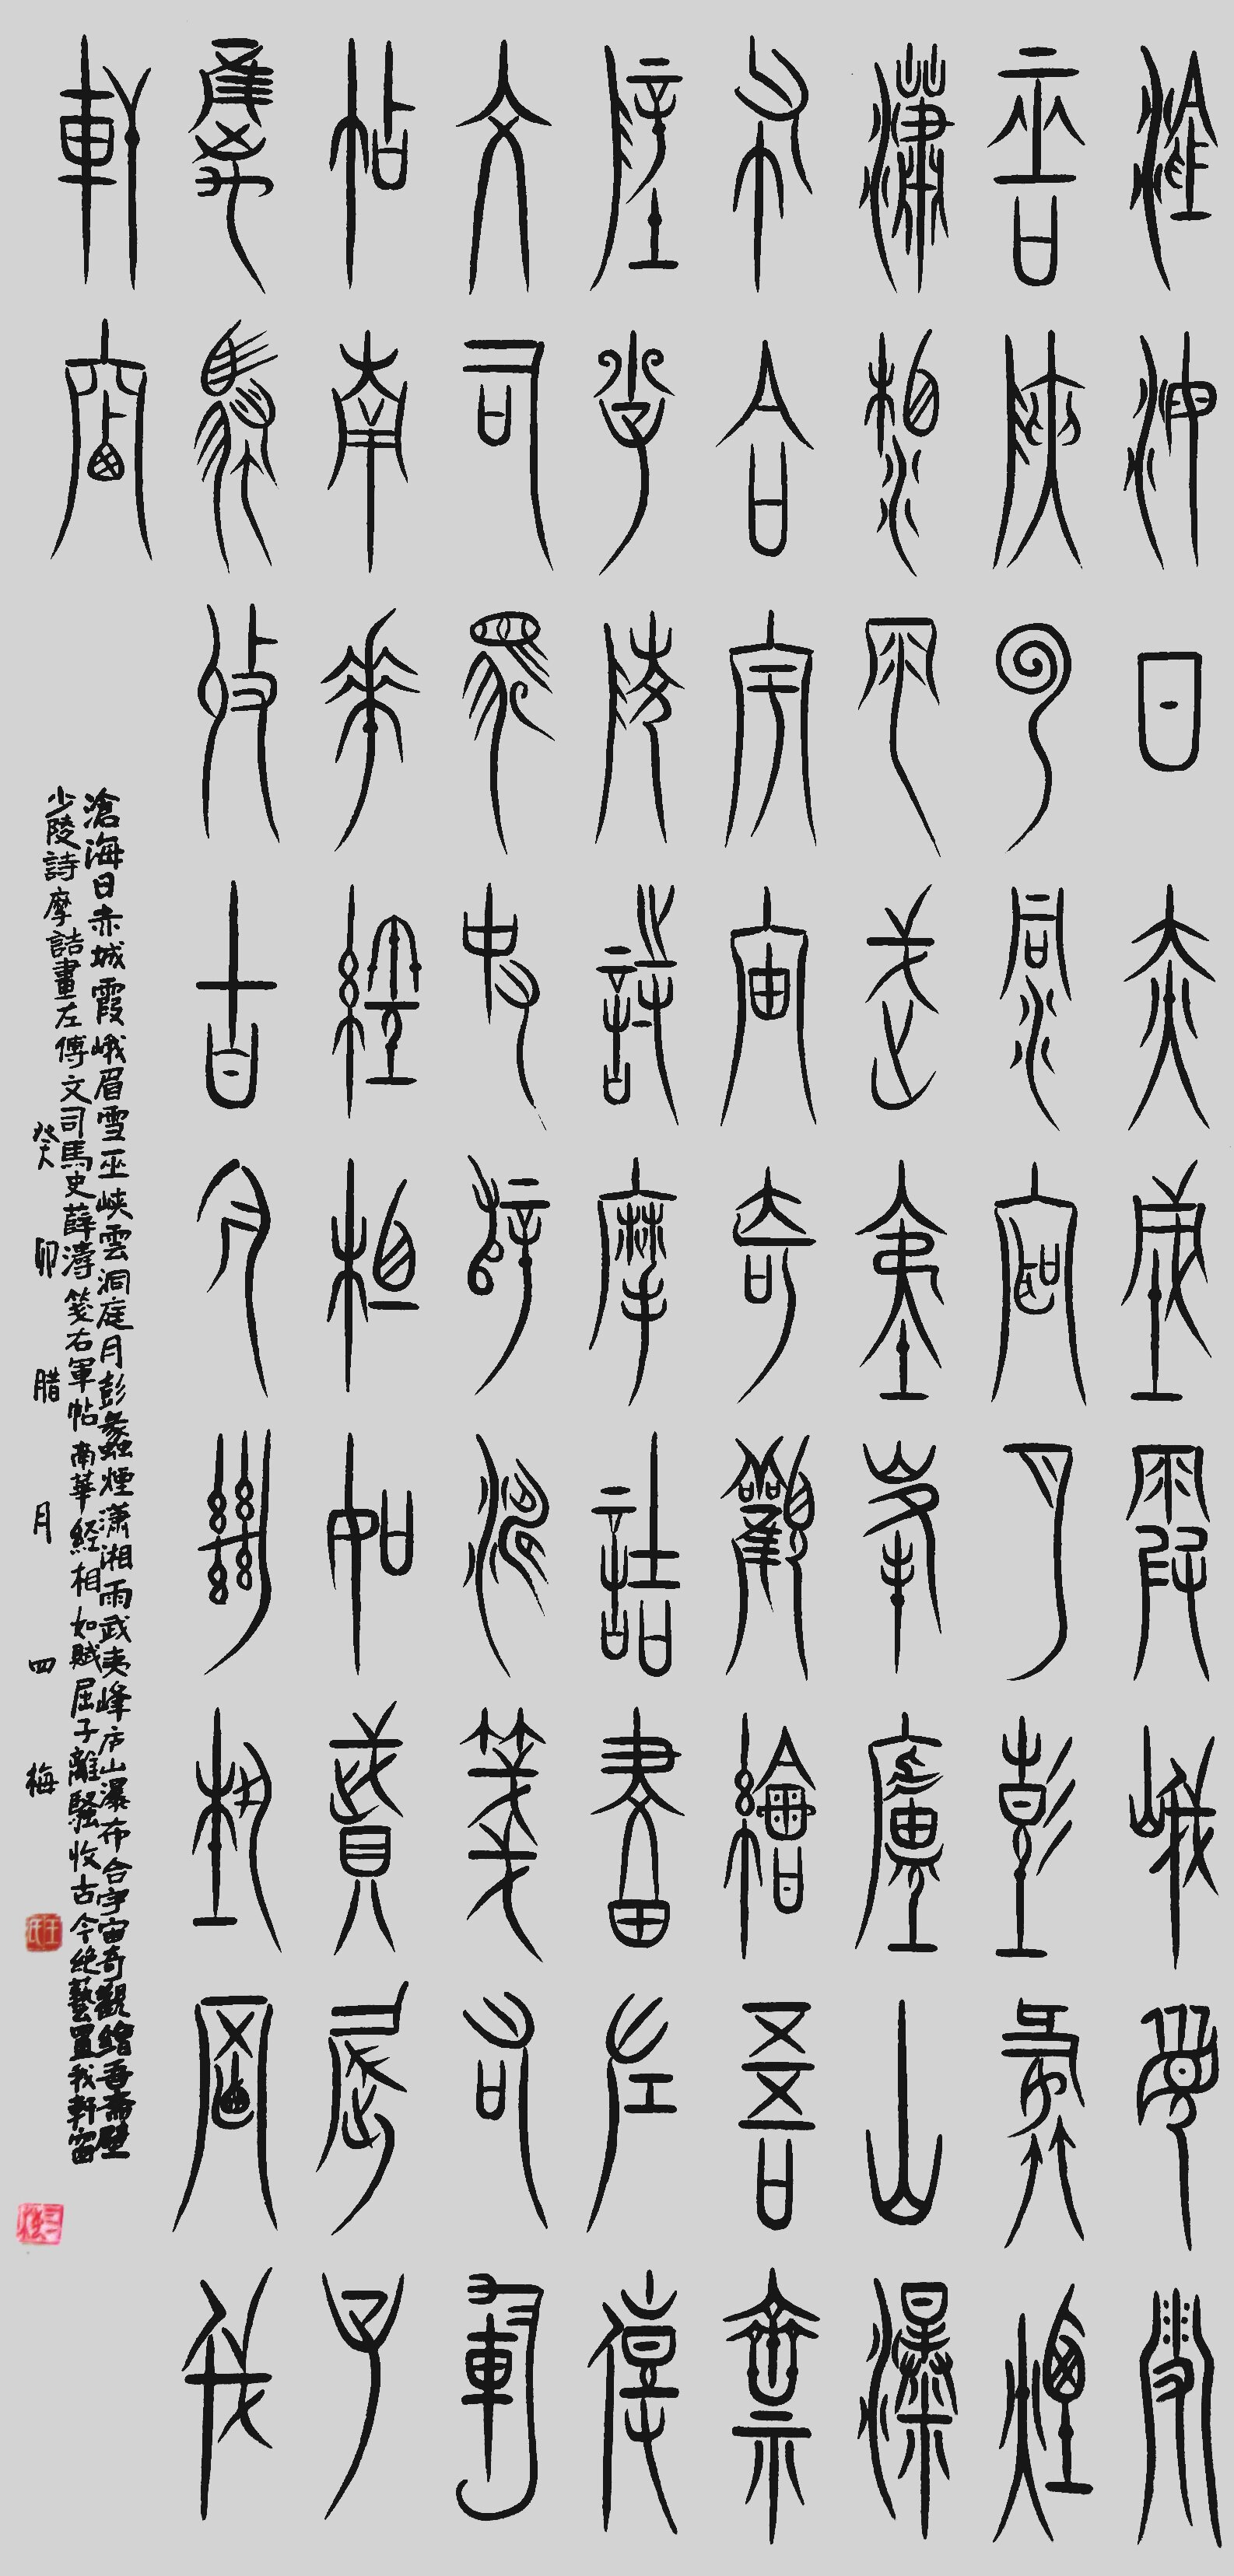 滄海日赤城霞峨眉雪
巫峽雲洞庭月彭蠡煙
瀟湘雨武夷峰廬山瀑
布合宇宙奇觀繪吾齋
壁少陵詩摩詰畫左傳
文司馬史薛濤箋右軍
帖南華經相如賦屈子
離騷收古今絕藝置我
軒窗
滄海日赤城霞峨眉雪巫峡雲洞庭月彭蠡煙潇湘雨武夷峰庐山瀑布合宇宙奇觀繪吾齋壁
少陵詩摩詰畫左傳文司馬史薛濤箋右軍帖南華経相如賦屈子離騷收古今绝藝置我軒窗
癸卯腊月四梅
王氏